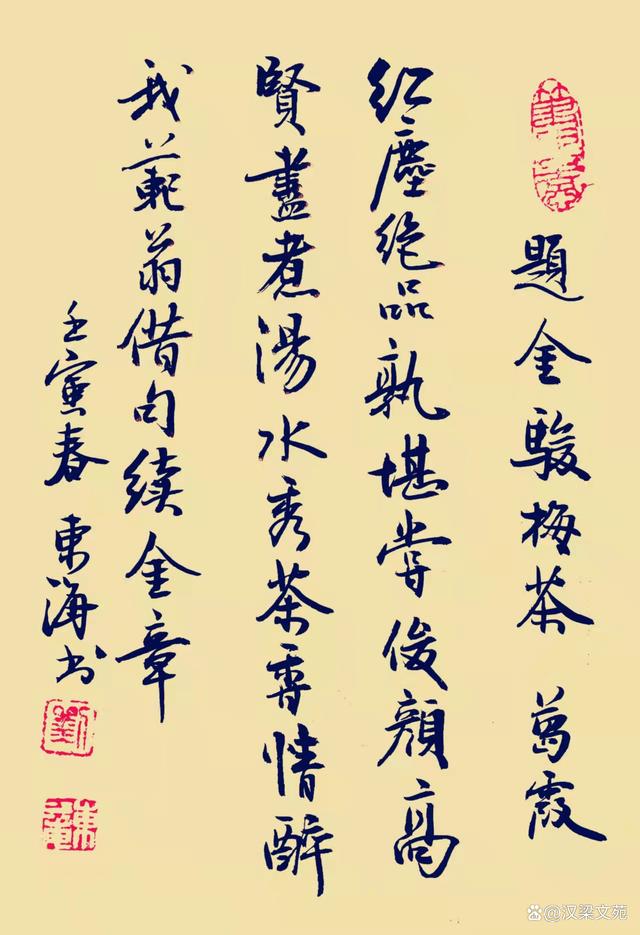 題金駿梅茶 葛霞
红塵绝品孰堪嘗俊顏高
賢盡煮湯水秀茶香情醉
我範翁借句续金章
壬寅春 東海书
汉梁文苑